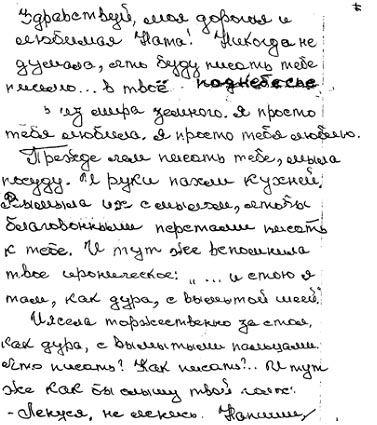 Здравствуй, моя дорогая и
любимая Ната! Никогда не
думала, что буду писать тебе
письмо... в твоё поднебесье
из мира земного. Я просто
тебя любила. Я просто тебя люблю.
Прежде чем писать тебе, мыла
посуду. И руки пахли кухней,
Вымыла их с мылом, чтобы
благовонными перстами писать
к тебе. И тут же вспомнила
твоё ироническое: „... и стою я
там, как дура, с вымытой шеей."
И села торжественно за стол,
как дура, с вымытыми пальцами.
Что писать? Как писать?.. И тут
же как бы слышу твой голос:
- Ленуся, не ленись. Напиши,